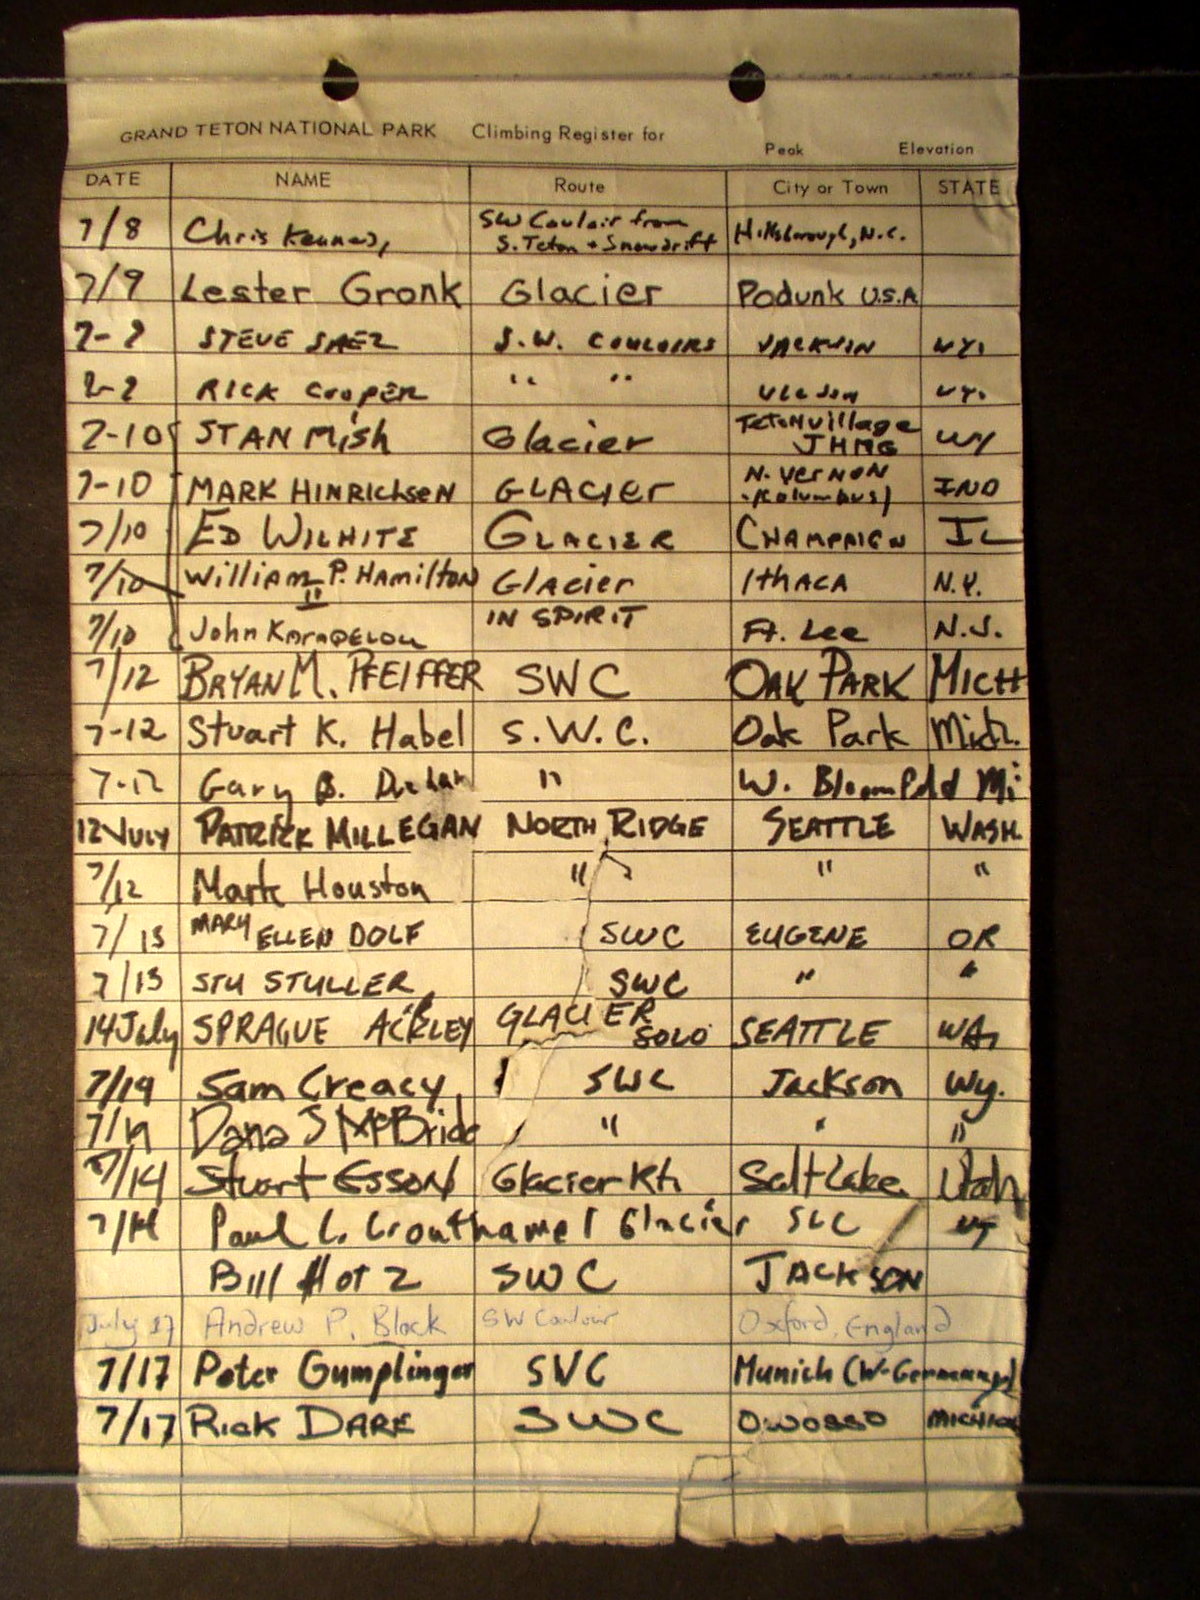 GRAND TETON NATIONAL PARK Climbing Register for
Peak Elevation
DATE NAME Route City or Town STATE
7/8 Chris Kennedy, SW Couloir from S. Teton + Snowdrift Hillsborough, N.C.
7/9 Lester Gronk Glacier Podunk U.S.A
7-9 STEVE SAEZ S.W. COULOIRS WY.
RICK COOPER " " WY.
7-10 STAN Mish Glacier TETON Village JHMG WY
7-10 MARK HINRICHSEN GLACIER N. VERNON (Columbus) IND
7/10 ED WILHITE GLACIER CHAMPAIGN IL
7/10 William P. HAMILTON II Glacier IthACA N.Y.
7/10 John IN SPIRIT Ft. Lee N.J.
7/12 BRYAN M. PFEIFFER SWC OAK PARK MICH
7-12 Stuart K. Habel S.W.C. Oak Park Mich.
7-12 Gary B. " W. Bloomfield Mi
12 JULY PATRICK MILLEGAN NORTH RIDGE SEATTLE WASH
7/12 Mark Houston " " "
7/13 MARY ELLEN DOLF SWC EUGENE OR
7/13 STU STULLER SWC " "
14 July SPRAGUE ACKLEY GLACIER SOLO SEATTLE WA,
7/14 Sam Creacy SWC Jackson Wy.
7/14 Dana J McBride " " "
7/14 Stuart Esson Glacier Rt. Salt Lake Utah
7/14 Paul L. Crouthamel Glacier SLC UT
Bill Hotz SWC JACKSON
July 17 Andrew P. Block SW Couloir Oxford, England
7/17 Peter Gumplinger SWC Munich (W-Germany)
7/17 Rick DARE SWC OWOSSO MICHIGAN